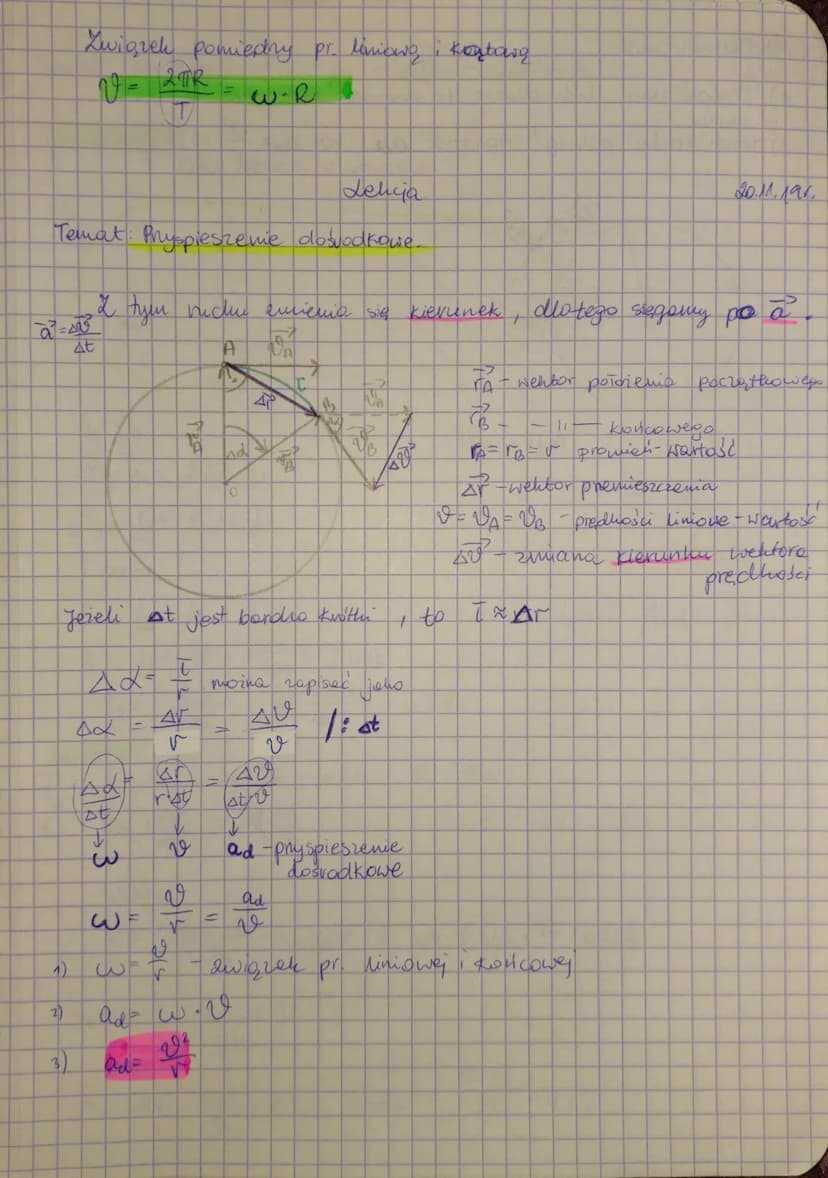 Związek pomiędzy pr. liniową i kątową
v = 2πR/T = ω · R
Lekcja 20.11.19r.
Temat: Przyspieszenie dośrodkowe.
Z tym ruchu zmienia się kierunek, dlatego sięgamy po a⃗.
a⃗ = Δv⃗/Δt
A v⃗A
r⃗A – wektor położenia początkowego
Δr⃗ l B v⃗A
r⃗B – –〃– końcowego
r⃗A Δα r⃗B v⃗B Δv⃗
rA = rB = r promień - wartość
O
Δr⃗ – wektor przemieszczenia
v = vA = vB – prędkości liniowe - wartość
Δv⃗ – zmiana kierunku wektora
prędkości
Jeżeli Δt jest bardzo krótki, to l ≈ Δr
Δα = l/r można zapisać jako
Δα = Δr/r = Δv/v /: Δt
Δα/Δt = Δr/r·Δt = Δv/Δt·v
↓ ↓ ↓
ω v ad – przyspieszenie
dośrodkowe
ω = v/r = ad/v
1) ω = v/r – związek pr. liniowej i końcowej
2) ad = ω · v
3) ad = v²/r